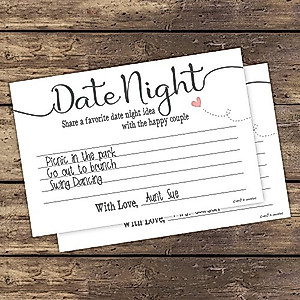 Date Night
Share a favorite date night idea
with the happy couple
Picnic in the park
Go out to brunch
Swing Dancing
With Love, Aunt Sue
With Love,